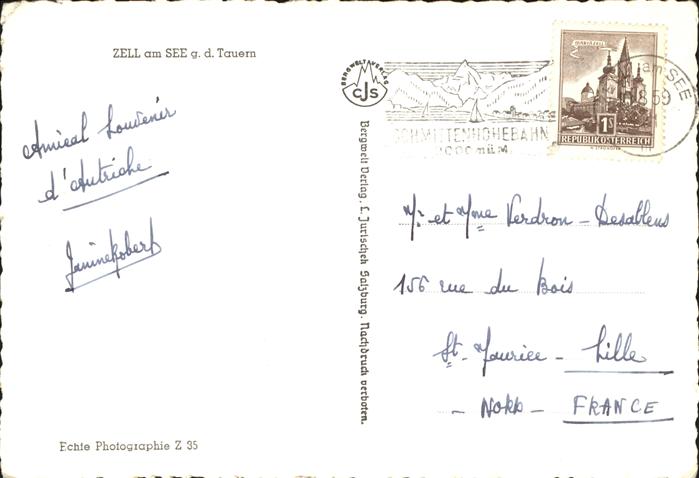 ZELL am SEE g. d. Tauern
Amical Souvenir
d'Autriche
Janinekobert
Echte Photographie Z 35
BERGWELTVERLAG
CJS
Bergwelt Verlag, L. Jurischek Salzburg. Nachdruck verboten.
SCHMITTENHÖHEBAHN
MARIAZELL
1S
REPUBLIK ÖSTERREICH
am SEE
59
Mr et Mme Verdron - Desablens
156 rue du Bois
St. Maurice - Lille
- NORD - FRANCE